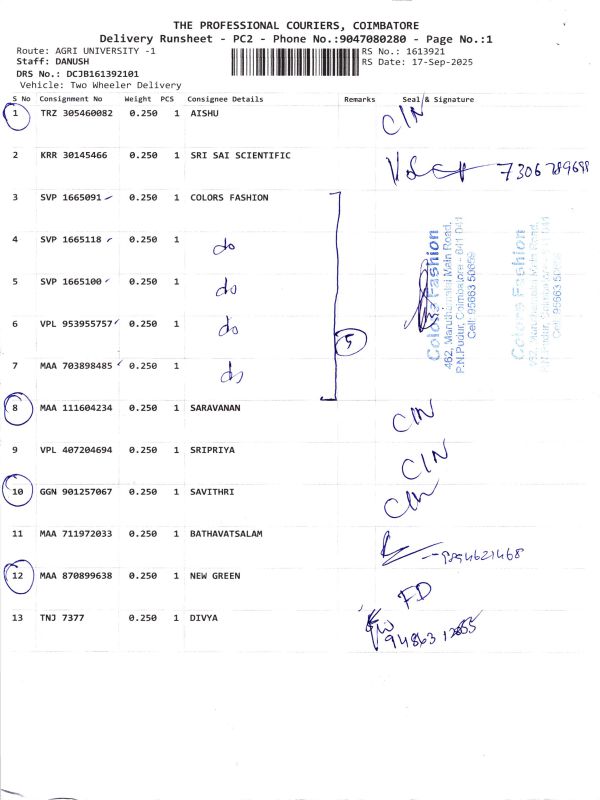 THE PROFESSIONAL COURIERS, COIMBATORE
Delivery Runsheet - PC2 - Phone No.:9047080280 - Page No.:1
Route: AGRI UNIVERSITY -1 RS No.: 1613921
Staff: DANUSH RS Date: 17-Sep-2025
DRS No.: DCJB161392101
Vehicle: Two Wheeler Delivery
S No Consignment No Weight PCS Consignee Details Remarks Seal & Signature
1 TRZ 305460082 0.250 1 AISHU C/N
2 KRR 30145466 0.250 1 SRI SAI SCIENTIFIC 7306789698
3 SVP 1665091 0.250 1 COLORS FASHION
4 SVP 1665118 0.250 1 do
5 SVP 1665100 0.250 1 do
6 VPL 953955757 0.250 1 do
5
7 MAA 703898485 0.250 1 do
Colors Fashion
462, Marudhamalai Main Road,
P.N.Pudur, Coimbatore - 641 041
Cell: 95663 50659
Colors Fashion
462, Marudhamalai Main Road,
P.N.Pudur, Coimbatore - 641 041
Cell: 95663 50659
8 MAA 111604234 0.250 1 SARAVANAN C/N
9 VPL 407204694 0.250 1 SRIPRIYA C/N
10 GGN 901257067 0.250 1 SAVITHRI C/N
11 MAA 711972033 0.250 1 BATHAVATSALAM 9894621468
12 MAA 870899638 0.250 1 NEW GREEN FD
13 TNJ 7377 0.250 1 DIVYA